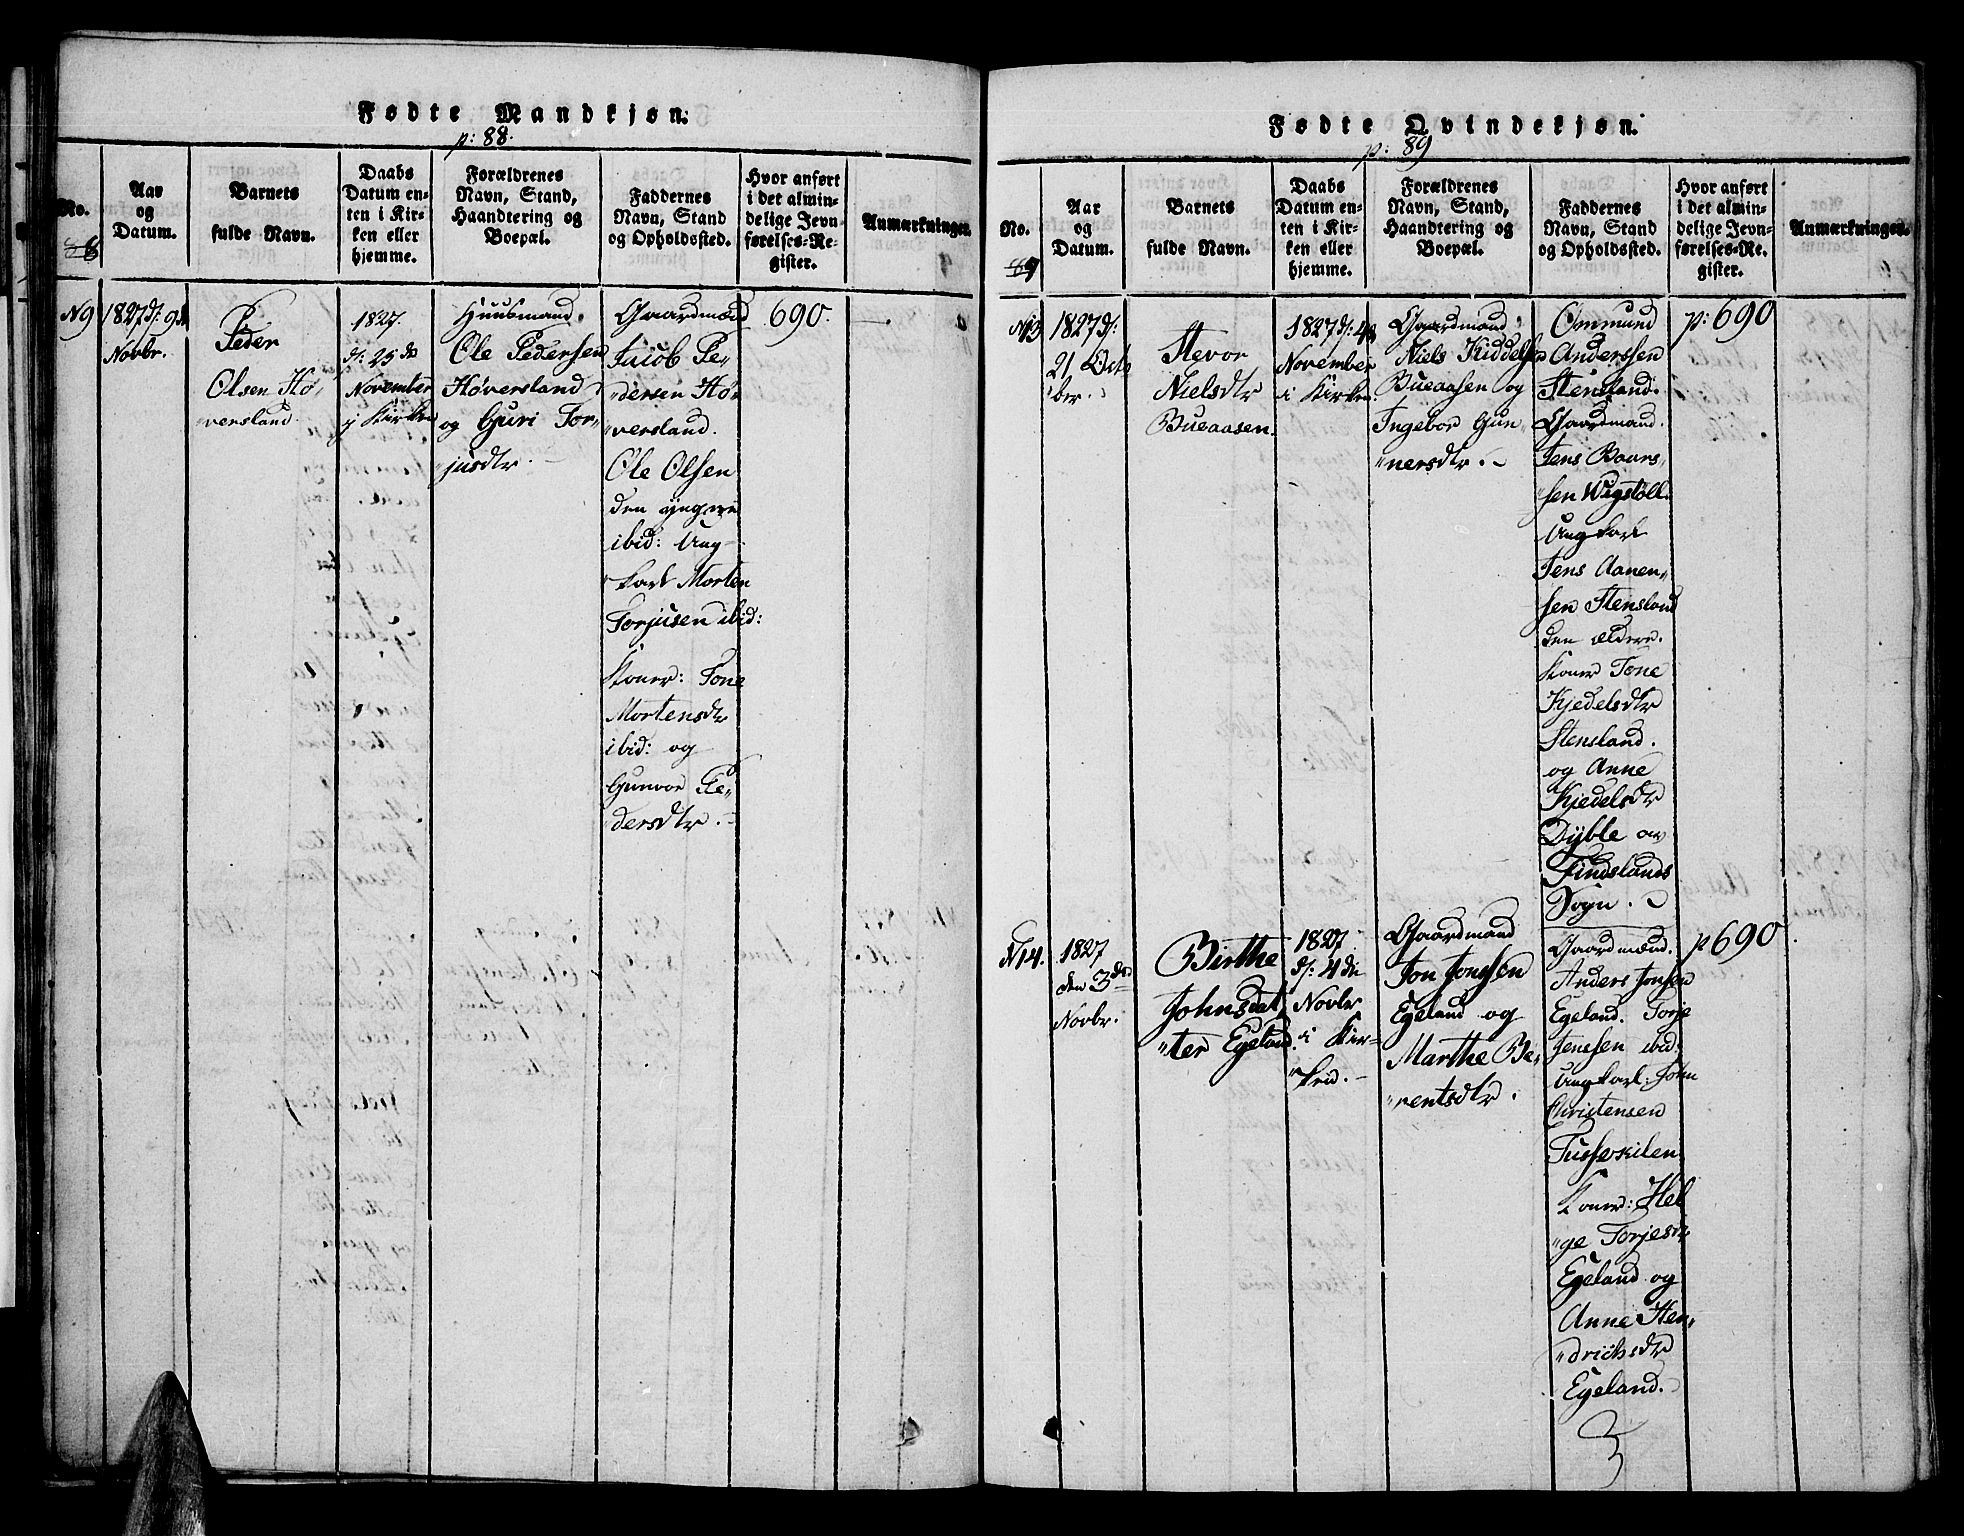 Fødte Mandkjøn.
p: 88.
No.
Aar
og
Datum.
Barnets
fulde Navn.
Daabs
Datum en-
ten i Kir-
ken eller
hjemme.
Forældrenes
Navn, Stand,
Haandtering og
Boepæl.
Faddernes
Navn, Stand
og Opholdssted.
Hvor anført
i det almin-
delige Jevn-
førelses-Re-
gister.
Anmærkninger.
N9
1827 d: 9de
Novbr.
Peder
Olsen Hø-
versland
1827.
d: 25de
November
i Kirken
Huusmand.
Ole Pedersen
Høversland
og Guri Tor-
jusdtr.
Gaardmænd
Jacob Pe-
dersen Hø-
versland.
Ole Olsen
den yngre
ibid: Ung-
karl Morten
Torjusen ibid:
Koner: Tone
Mortensdtr
ibid: og
Gunvor Pe-
dersdtr.
690.
Fødte Qvindekjøn.
p: 89
No.
89
Aar
og
Datum.
Barnets
fulde Navn.
Daabs
Datum en-
ten i Kir-
ken eller
hjemme.
Forældrenes
Navn, Stand,
Haandtering og
Boepæl.
Faddernes
Navn, Stand
og Opholdssted.
Hvor anført
i det almin-
delige Jevn-
førelses-Re-
gister.
Anmærkninger.
N13
1827 d:
21 Octo
ber.
Stevor
Nielsdtr
Bueaasen.
1827 d: 4de
November
i Kirken
Gaardmand
Niels Kiddelsen
Bueaasen og
Ingebor Gun
nersdtr.
Ommund
Anderssen
Stensland.
Gaardmand.
Jens Baars-
sen Wigstøll.
Ungkarl
Jens Aanen-
sen Stensland
den ældere.
Koner Tone
Kjedelsdtr
Stensland.
og Anne
Kjedelsdtr
Dyble av
Findslands
Sogn.
p: 690
N14.
1827
den 3de
Novbr.
Birthe
Johnsdat
ter Egeland.
1827
d: 4de
Novbr
i Kir-
ken.
Gaardmand
Jon Jonssen
Egeland og
Marthe Be-
rentsdtr.
Gaardmænd.
Anders Jonsen
Egeland. Torje
Jenssen ibid:
Ungkarl: John
Christensen
Tusseskilen
Koner: Hel
ge Torjesdtr
Egeland og
Anne Hen-
drichsdtr
Egeland.
p 690